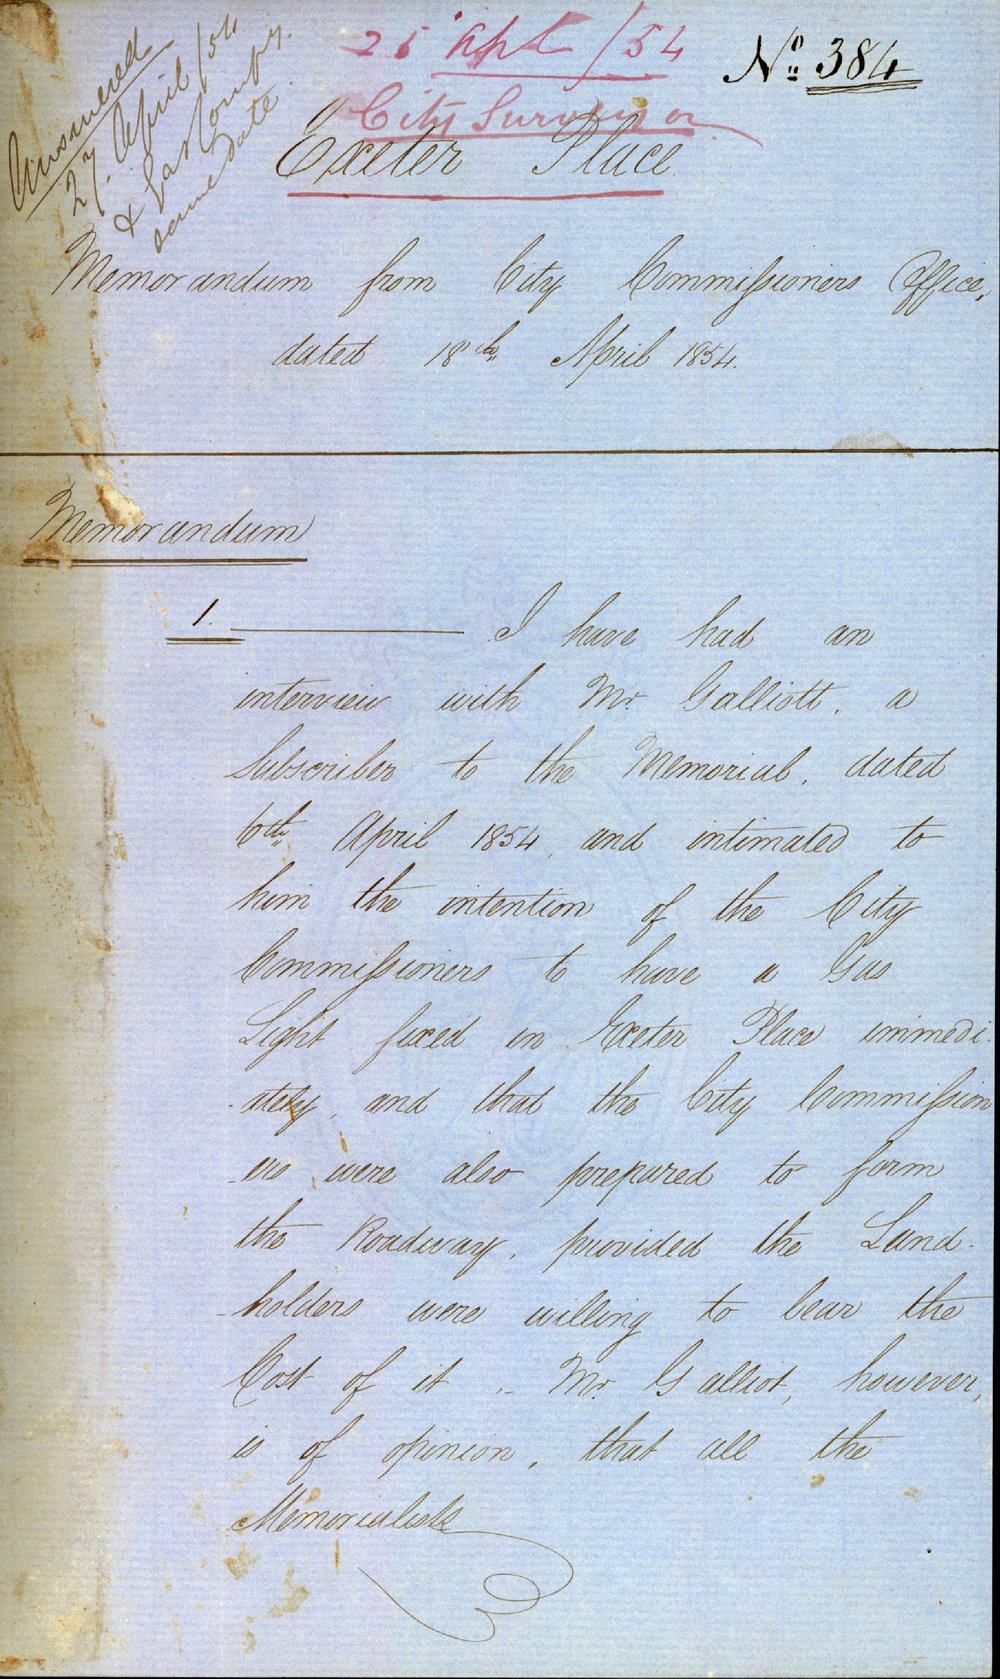 Answered
27. April /54
& Gas Compy.
same date
25 Apl /54
No. 384
City Surveyor
Exeter Place.
Memorandum from City Commissioners Office,
dated 18th April 1854.
Memorandum
1. I have had an
interview with Mr. Galliott, a
Subscriber to the Memorial, dated
6th April 1854, and intimated to
him the intention of the City
Commissioners to have a Gas
Light fixed in Exeter Place immedi-
-ately, and that the City Commission
-ers were also prepared to form
the Roadway, provided the Land-
-holders were willing to bear the
Cost of it .- Mr. Galliot, however,
is of opinion, that all the
Memorialists